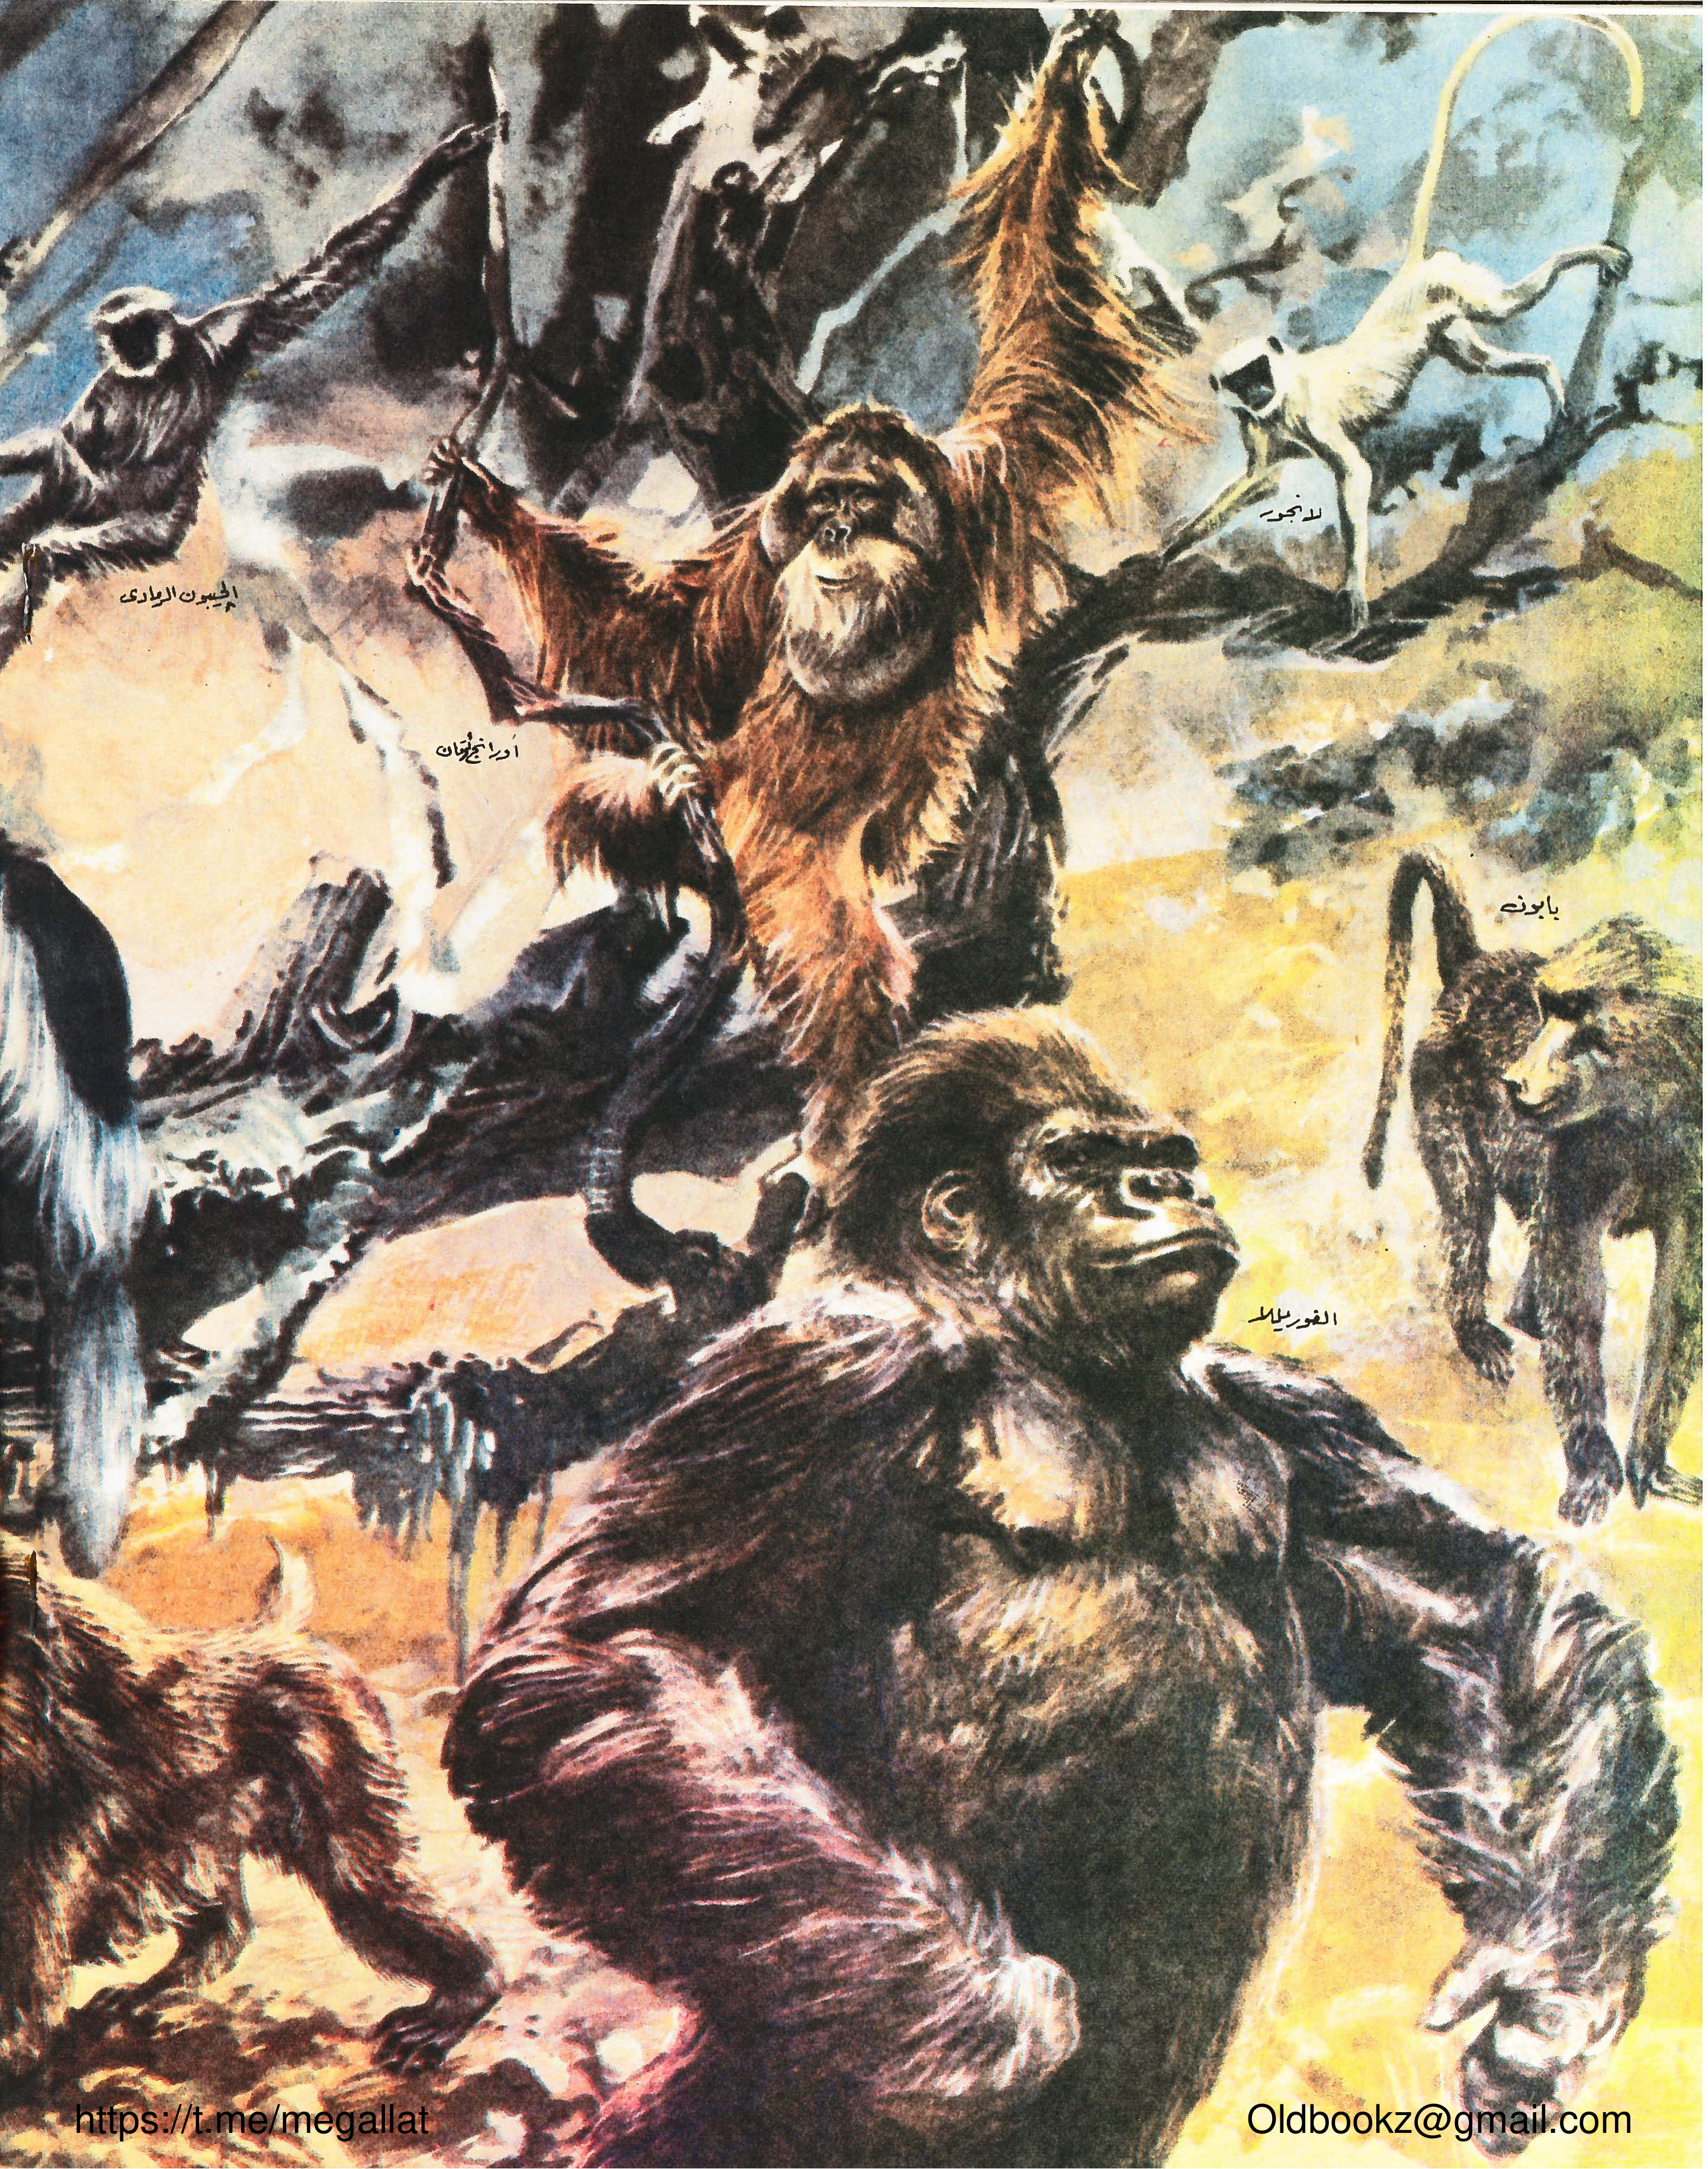 لانجور
الجيبون الرمادى
أورانج أوتان
يابون
الغوريللا
https://t.me/megallat
Oldbookz@gmail.com